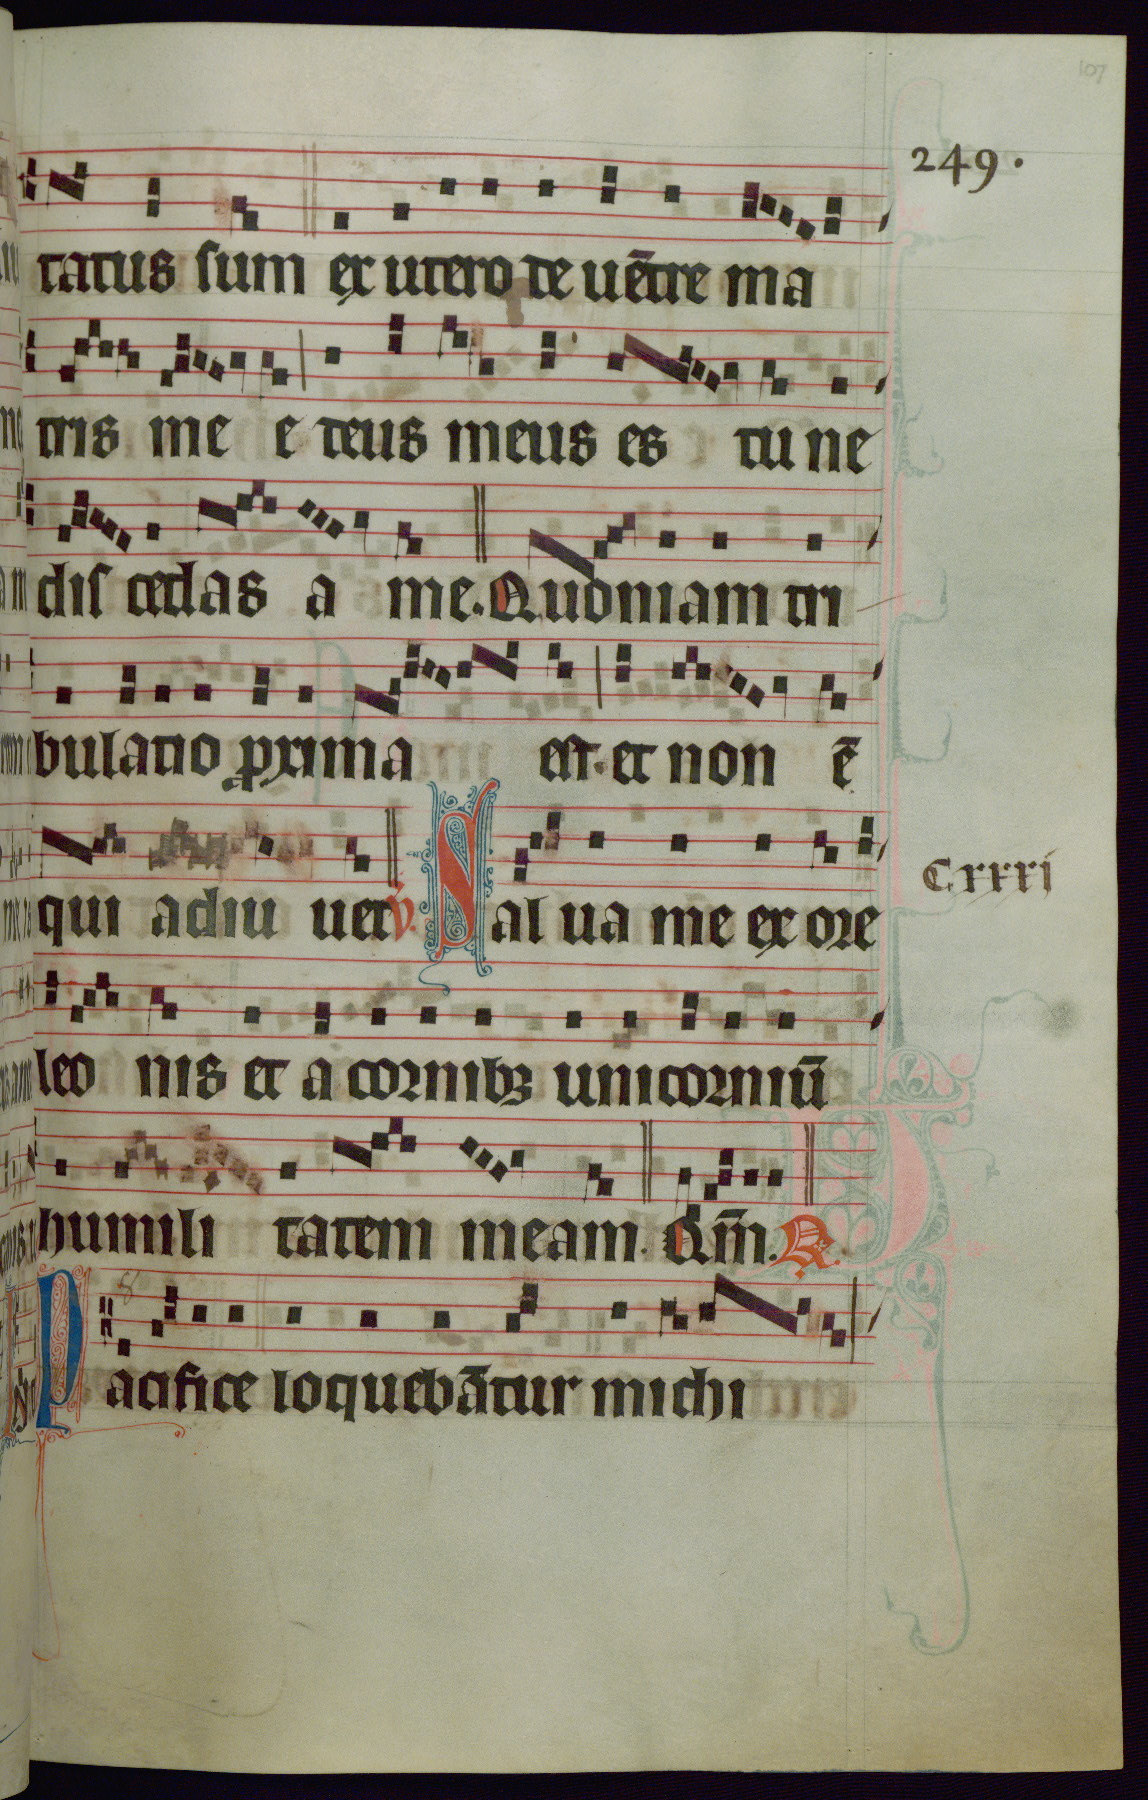 107
249.
tatus sum ex utero de uētre ma
tris me e deus meus es tu ne
dis cedas a me. Quoniam tri
bulatio ꝓxima est. et non ē
qui adiu uet ℣. Salua me ex ore
leo nis et a cornibꝫ unicorniū
humili tatem meam. Qm̄. R.
Pacifice loquebātur michi
Cxxxi